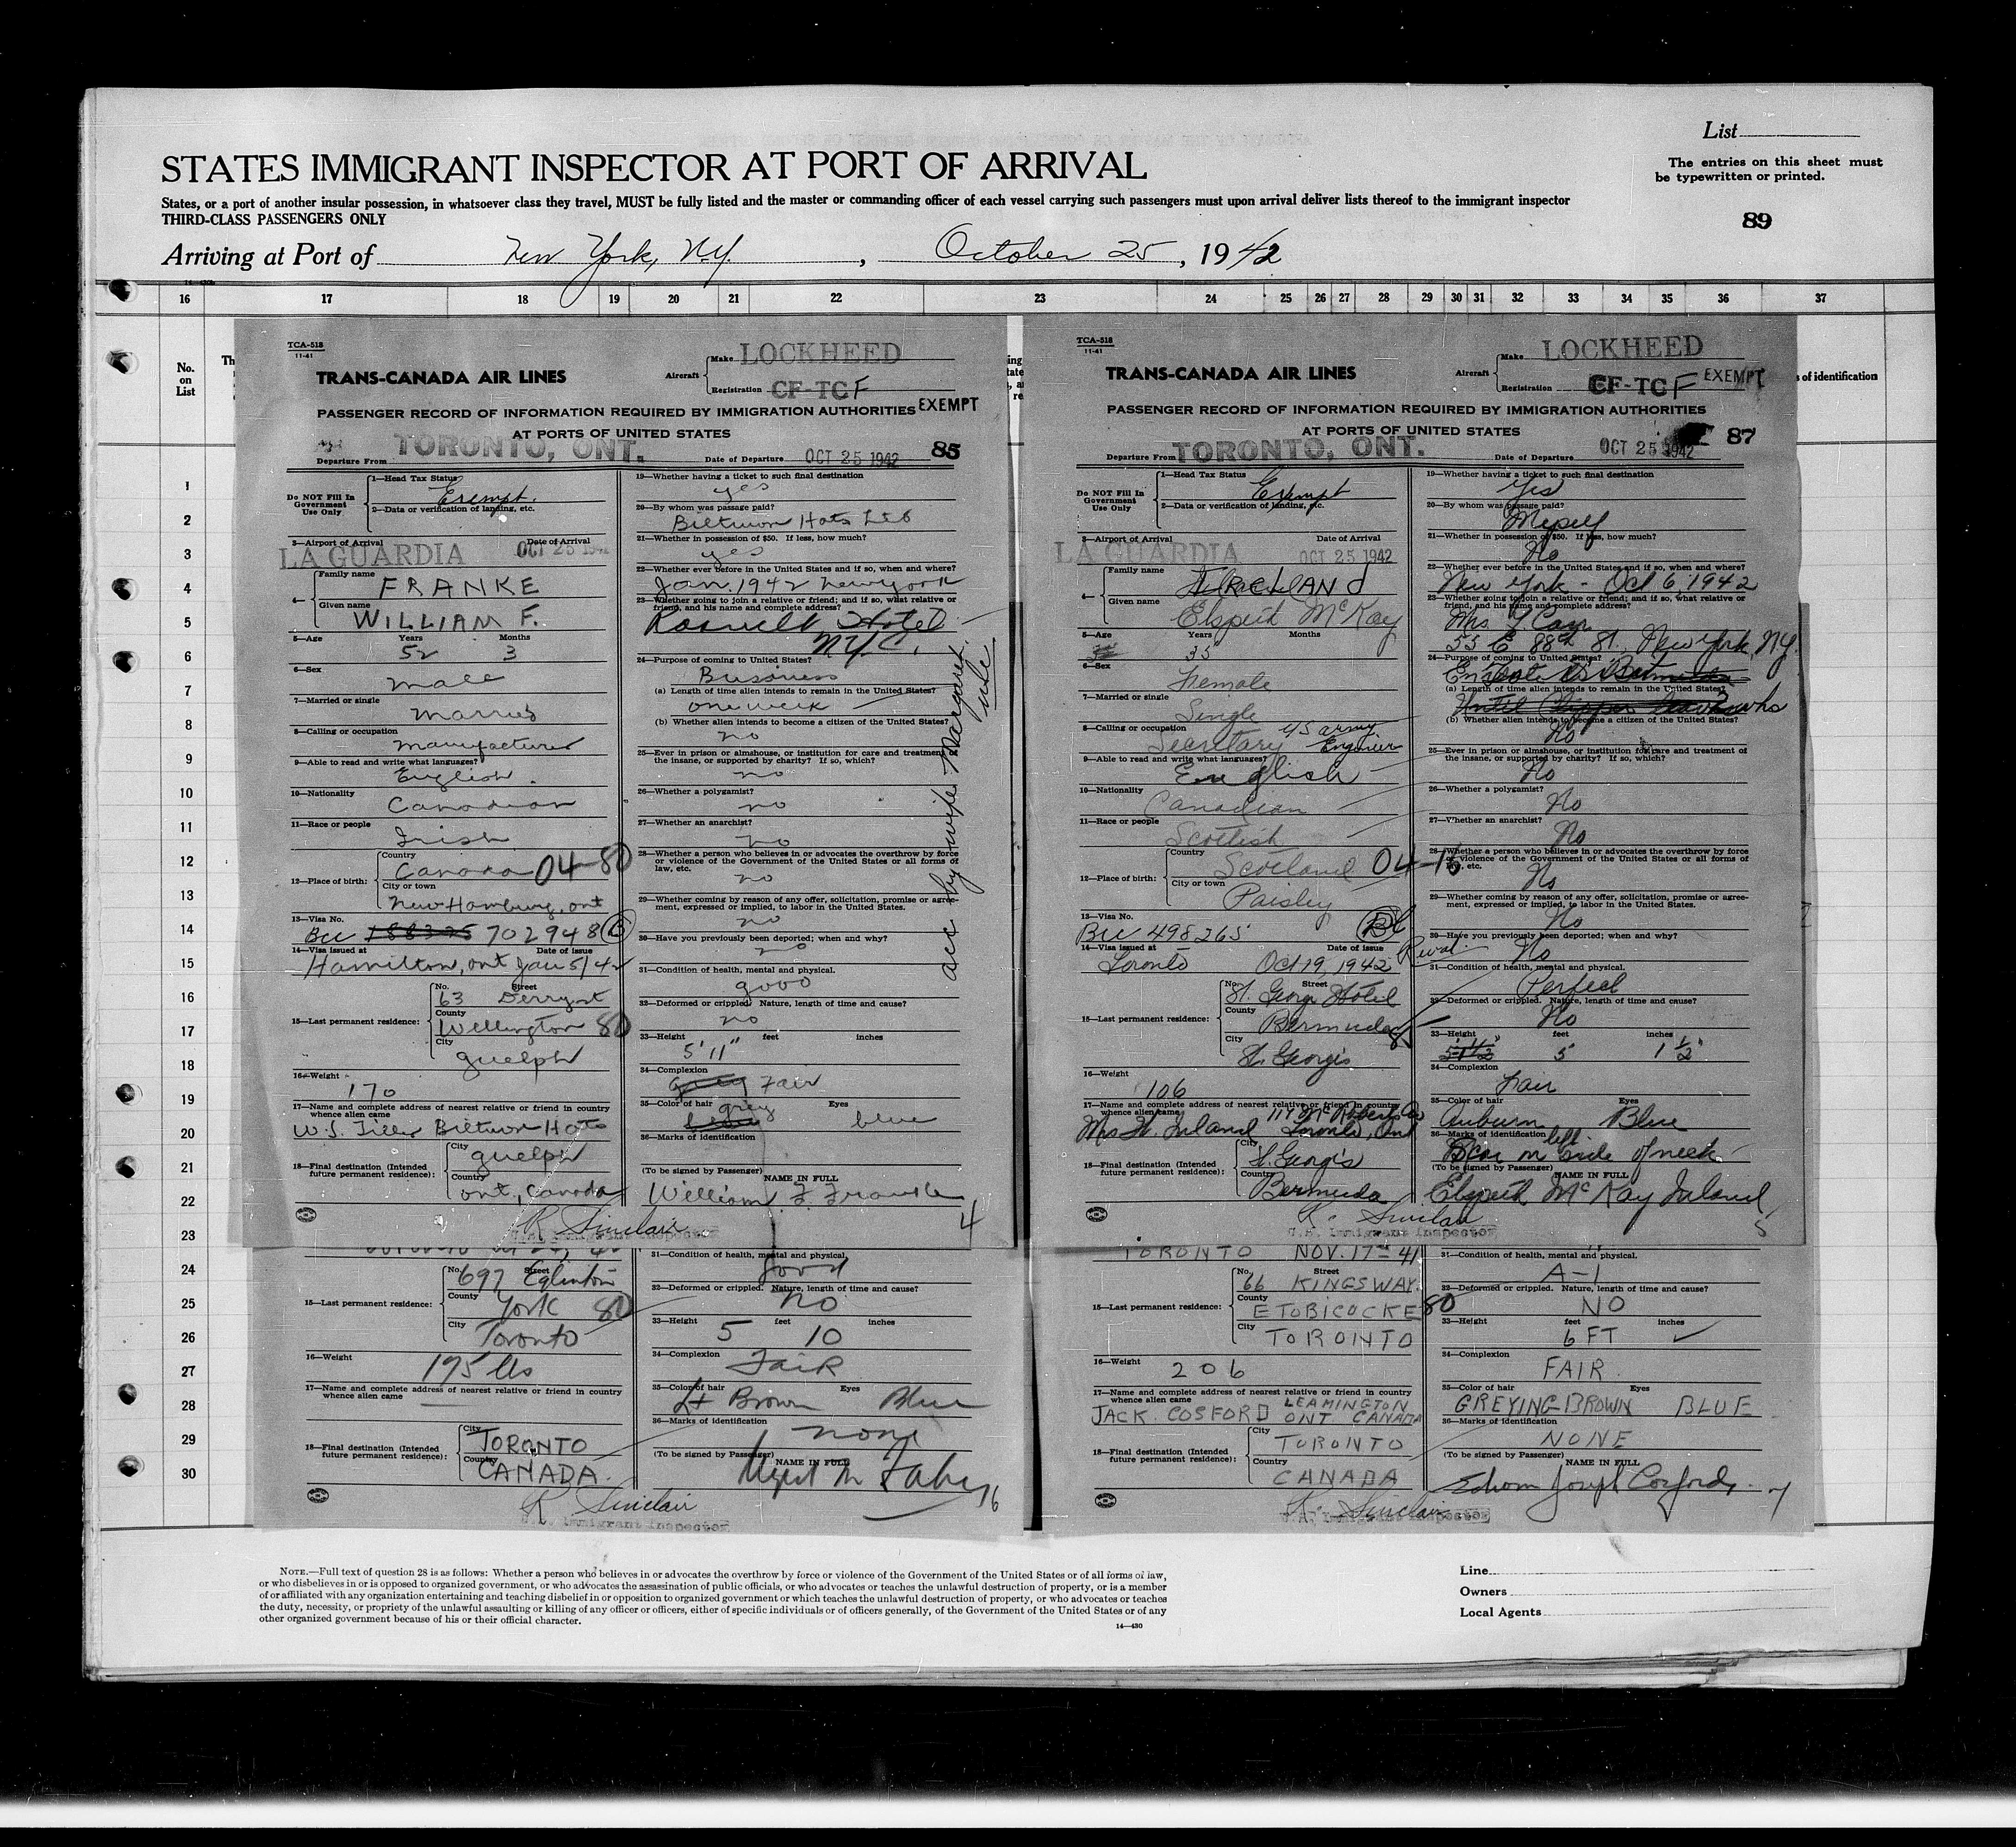 List
STATES IMMIGRANT INSPECTOR AT PORT OF ARRIVAL
The entries on this sheet must
be typewritten or printed.
States, or a port of another insular possession, in whatsoever class they travel, MUST be fully listed and the master or commanding officer of each vessel carrying such passengers must upon arrival deliver lists thereof to the immigrant inspector
THIRD-CLASS PASSENGERS ONLY
89
Arriving at Port of New York, N.Y., October 25, 1942
16 17 18 19 20 21 22 23 24 25 26 27 28 29 30 31 32 33 34 35 36 37
No.
on
List
s of identification
1
2
3
4
5
6
7
8
9
10
11
12
13
14
15
16
17
18
19
20
21
22
23
24
25
26
27
28
29
30
TCA-518
11-41
TRANS-CANADA AIR LINES
Aircraft
Make LOCKHEED
Registration CF-TCF
PASSENGER RECORD OF INFORMATION REQUIRED BY IMMIGRATION AUTHORITIES EXEMPT
AT PORTS OF UNITED STATES
85
Departure From TORONTO, ONT. Date of Departure OCT 25 1942
Do NOT Fill In
Government
Use Only
1—Head Tax Status
Exempt.
2—Data or verification of landing, etc.
3—Airport of Arrival Date of Arrival
LA GUARDIA OCT 25 1942
4—
Family name
FRANKE
Given name
WILLIAM F.
5—Age Years Months
52 3
6—Sex
male
7—Married or single
Married
8—Calling or occupation
Manufacturer
9—Able to read and write what languages?
English.
10—Nationality
Canadian
11—Race or people
Irish
12—Place of birth:
Country
Canada 04-80
City or town
New Hamburg, ont
13—Visa No.
BCC 188325 702948 B
14—Visa issued at Date of issue
Hamilton, ont Jan 5/42
15—Last permanent residence:
No. Street
63 Derry st
County
Wellington 80
City
Guelph
16—Weight
170
17—Name and complete address of nearest relative or friend in country
whence alien came
W.S. Tiller Biltmore Hats
18—Final destination (Intended
future permanent residence):
City
Guelph
Country
ont, Canada
R. Sinclair
U.S. Immigrant Inspector
19—Whether having a ticket to such final destination
yes
20—By whom was passage paid?
Biltmore Hats Ltd
21—Whether in possession of $50. If less, how much?
yes
22—Whether ever before in the United States and if so, when and where?
Jan. 1942 New York
23—Whether going to join a relative or friend; and if so, what relative or
friend, and his name and complete address?
Roosvelt Hotel
N.Y.C.
24—Purpose of coming to United States?
Business
(a) Length of time alien intends to remain in the United States?
one week
(b) Whether alien intends to become a citizen of the United States?
no
25—Ever in prison or almshouse, or institution for care and treatment of
the insane, or supported by charity? If so, which?
no
26—Whether a polygamist?
no
27—Whether an anarchist?
no
28—Whether a person who believes in or advocates the overthrow by force
or violence of the Government of the United States or all forms of
law, etc.
no
29—Whether coming by reason of any offer, solicitation, promise or agree-
ment, expressed or implied, to labor in the United States.
no
30—Have you previously been deported; when and why?
no
31—Condition of health, mental and physical.
good
32—Deformed or crippled. Nature, length of time and cause?
no
33—Height feet inches
5'11"
34—Complexion
grey Fair
35—Color of hair Eyes
grey blue
36—Marks of identification
(To be signed by Passenger) NAME IN FULL
William F. Franke
4
acc by wife Margaret
TCA-518
11-41
TRANS-CANADA AIR LINES
Aircraft
Make LOCKHEED
Registration CF-TCF EXEMPT
PASSENGER RECORD OF INFORMATION REQUIRED BY IMMIGRATION AUTHORITIES
AT PORTS OF UNITED STATES
87
Departure From TORONTO, ONT. Date of Departure OCT 25 1942
Do NOT Fill In
Government
Use Only
1—Head Tax Status
Exempt
2—Data or verification of landing, etc.
3—Airport of Arrival Date of Arrival
LA GUARDIA OCT 25 1942
4—
Family name
IRELAND
Given name
Elspeth McKay
5—Age Years Months
35
6—Sex
Female
7—Married or single
Single
8—Calling or occupation
Secretary US Army Engineer
9—Able to read and write what languages?
English
10—Nationality
Canadian
11—Race or people
Scottish
12—Place of birth:
Country
Scotland 04-15
City or town
Paisley
13—Visa No.
BCC 498265
14—Visa issued at Date of issue
Toronto Oct 19, 1942
15—Last permanent residence:
No. Street
St. George Hotel
County
Bermuda 85
City
St. Georges
16—Weight
106
17—Name and complete address of nearest relative or friend in country
whence alien came
117 McRoberts Av
Mrs H. Ireland Toronto, Ont
18—Final destination (Intended
future permanent residence):
City
St. Georges
Country
Bermuda
R. Sinclair
U.S. Immigrant Inspector
19—Whether having a ticket to such final destination
Yes
20—By whom was passage paid?
Myself
21—Whether in possession of $50. If less, how much?
No
22—Whether ever before in the United States and if so, when and where?
New York - Oct 6, 1942
23—Whether going to join a relative or friend; and if so, what relative or
friend, and his name and complete address?
Mrs Y Carr
53 E 88th St., New York, N.Y.
24—Purpose of coming to United States?
En Route to Bermuda
(a) Length of time alien intends to remain in the United States?
Until Clipper leaves
(b) Whether alien intends to become a citizen of the United States?
No
25—Ever in prison or almshouse, or institution for care and treatment of
the insane, or supported by charity? If so, which?
No
26—Whether a polygamist?
No
27—Whether an anarchist?
No
28—Whether a person who believes in or advocates the overthrow by force
or violence of the Government of the United States or all forms of
law, etc.
No
29—Whether coming by reason of any offer, solicitation, promise or agree-
ment, expressed or implied, to labor in the United States.
No
30—Have you previously been deported; when and why?
No
31—Condition of health, mental and physical.
Perfect
32—Deformed or crippled. Nature, length of time and cause?
No
33—Height feet inches
5 1 1/2"
34—Complexion
Fair
35—Color of hair Eyes
Auburn Blue
36—Marks of identification
Scar on left side of neck
(To be signed by Passenger) NAME IN FULL
Elspeth McKay Ireland
5
15—Last permanent residence:
No. Street
697 Eglinton
County
York 80
City
Toronto
16—Weight
195 lbs
17—Name and complete address of nearest relative or friend in country
whence alien came
18—Final destination (Intended
future permanent residence):
City
TORONTO
Country
CANADA.
R. Sinclair
U.S. Immigrant Inspector
31—Condition of health, mental and physical.
Good
32—Deformed or crippled. Nature, length of time and cause?
NO
33—Height feet inches
5 10
34—Complexion
FAIR
35—Color of hair Eyes
Lt Brown Blue
36—Marks of identification
none
(To be signed by Passenger) NAME IN FULL
6
TORONTO NOV. 17TH 41
15—Last permanent residence:
No. Street
66 KINGSWAY.
County
ETOBICOCKE 80
City
TORONTO
16—Weight
206
17—Name and complete address of nearest relative or friend in country
whence alien came
JACK COSFORD LEAMINGTON
ONT CANADA
18—Final destination (Intended
future permanent residence):
City
TORONTO
Country
CANADA
R. Sinclair
U.S. Immigrant Inspector
31—Condition of health, mental and physical.
A-1
32—Deformed or crippled. Nature, length of time and cause?
NO
33—Height feet inches
6 FT
34—Complexion
FAIR.
35—Color of hair Eyes
GREYING BROWN BLUE
36—Marks of identification
NONE
(To be signed by Passenger) NAME IN FULL
Joseph Cosford
7
NOTE.—Full text of question 28 is as follows: Whether a person who believes in or advocates the overthrow by force or violence of the Government of the United States or of all forms of law,
or who disbelieves in or is opposed to organized government, or who advocates the assassination of public officials, or who advocates or teaches the unlawful destruction of property, or is a member
of or affiliated with any organization entertaining and teaching disbelief in or opposition to organized government or which teaches the unlawful destruction of property, or who advocates or teaches
the duty, necessity, or propriety of the unlawful assaulting or killing of any officer or officers, either of specific individuals or of officers generally, of the Government of the United States or of any
other organized government because of his or their official character.
14—430
Line
Owners
Local Agents